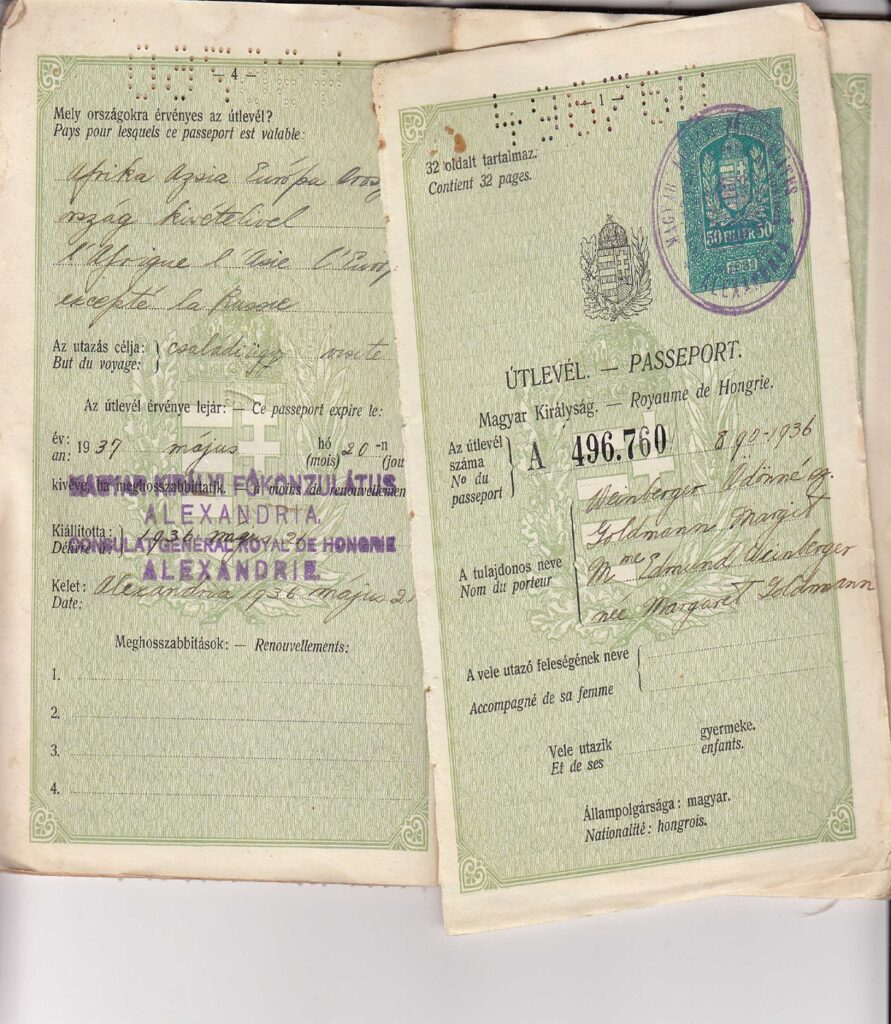 — 4 —
Mely országokra érvényes az útlevél?
Pays pour lesquels ce passeport est valable:
Afrika Azsia Európa Orosz
ország kivételivel
l'Afrique l'Asie l'Euro
excepté la Russie
Az utazás célja: családiügy visite
But du voyage:
Az útlevél érvénye lejár: — Ce passeport expire le:
év: an: 1937 május hó (mois) 20 -n (jou
kivéve, ha meghosszabbittatik. — à moins de renouvellemen
MAGYAR KIRÁLYI FŐKONZULÁTUS
ALEXANDRIA.
Kiállította:
Délivré à: 1936 május 21
CONSULAT GÉNÉRAL ROYAL DE HONGRIE
ALEXANDRIE
Kelet: Alexandria 1936 május 21
Date:
Meghosszabbitások: — Renouvellements:
1.
2.
3.
4.
496760
— 1 —
32 oldalt tartalmaz.
Contient 32 pages.
MAGYAR
ALEXANDRIA
50 FILLÉR 50
ÚTLEVÉL. — PASSEPORT.
Magyar Királyság. — Royaume de Hongrie.
Az útlevél száma
No du passeport
A 496.760
890-1936
A tulajdonos neve
Nom du porteur
Weinberger Ödönné sz.
Goldmann Margit
Mme Edmund Weinberger
nee Margaret Goldmann
A vele utazó feleségének neve
Accompagné de sa femme
Vele utazik gyermeke.
Et de ses enfants.
Állampolgársága: magyar.
Nationalité: hongrois.